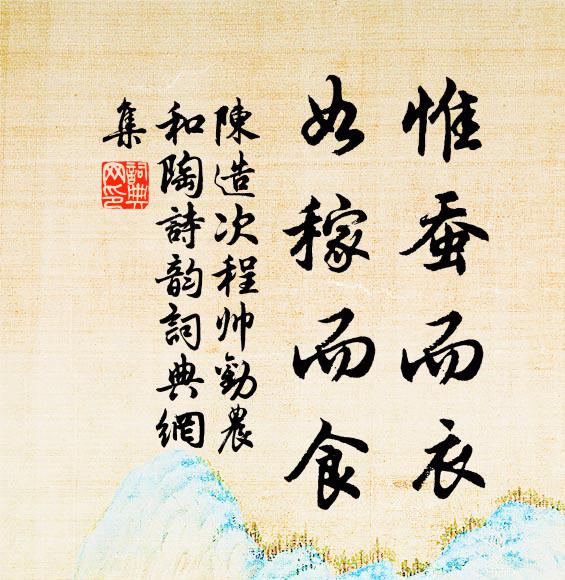 惟蚕而衣
如稼而食
陳造次程帅勸農
和陶詩韵詞典網
集
詞典
网印